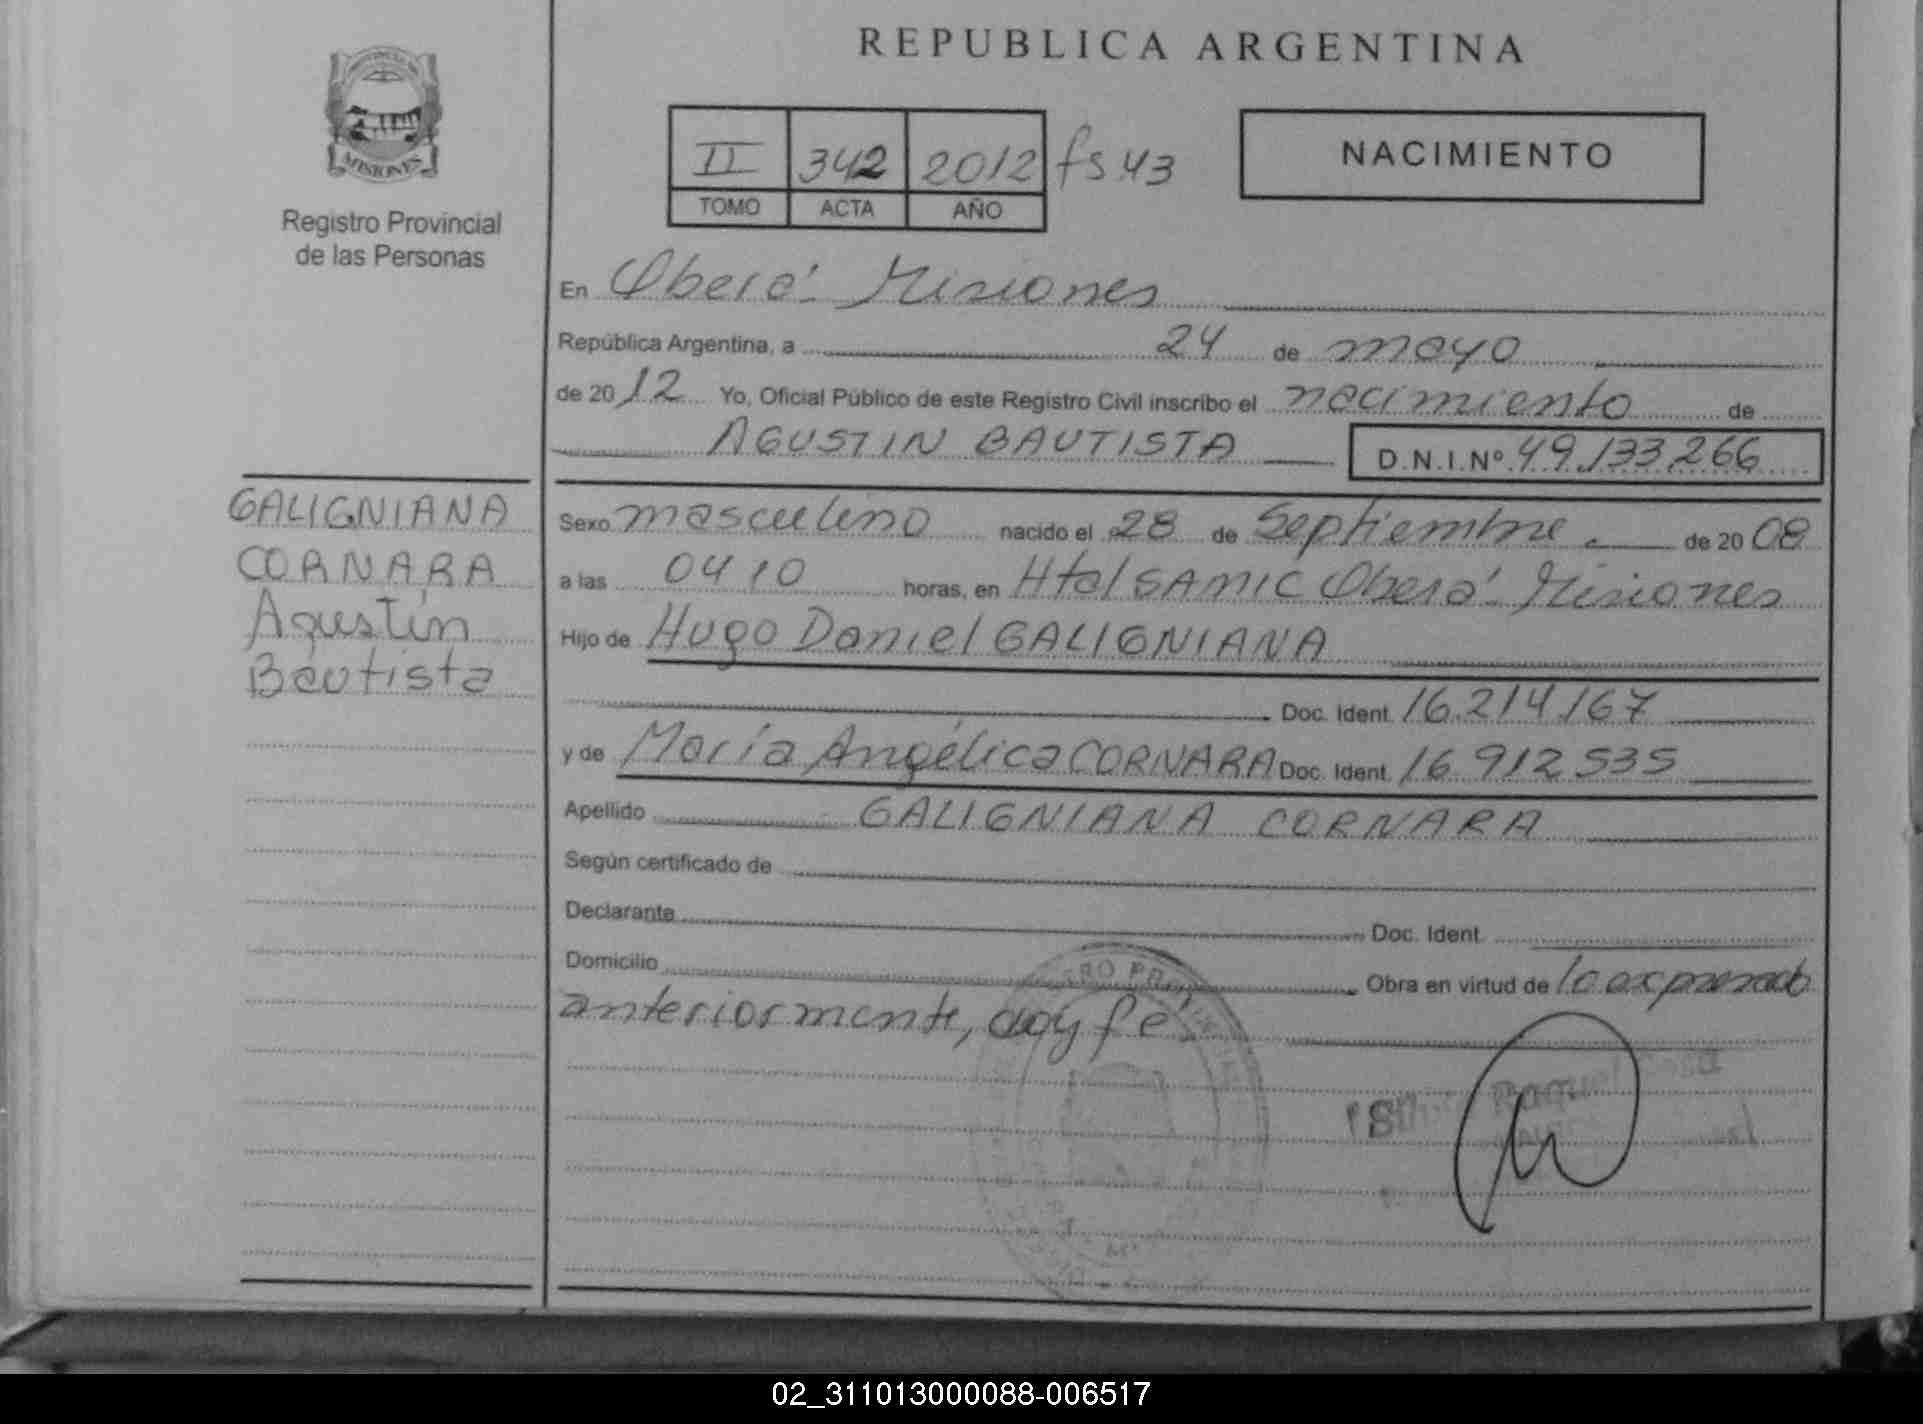 REPUBLICA ARGENTINA
PROVINCIA DE
MISIONES
Registro Provincial
de las Personas
II 342 2012 fs 43
TOMO ACTA AÑO
NACIMIENTO
En Oberá - Misiones
República Argentina, a 24 de mayo
de 2012 Yo, Oficial Público de este Registro Civil inscribo el nacimiento de
AGUSTIN BAUTISTA D.N.I.Nº 49.133.266
GALIGNIANA
CORNARA
Agustín
Bautista
Sexo masculino nacido el 28 de Septiembre de 2008
a las 04 10 horas, en Htal SAMIC Oberá - Misiones
Hijo de Hugo Daniel GALIGNIANA
Doc. Ident. 16.214.167
y de María Angélica CORNARA Doc. Ident. 16.912.535
Apellido GALIGNIANA CORNARA
Según certificado de
Declarante Doc. Ident.
Domicilio Obra en virtud de lo expresado
anteriormente, doy fé
Raquel
02_311013000088-006517